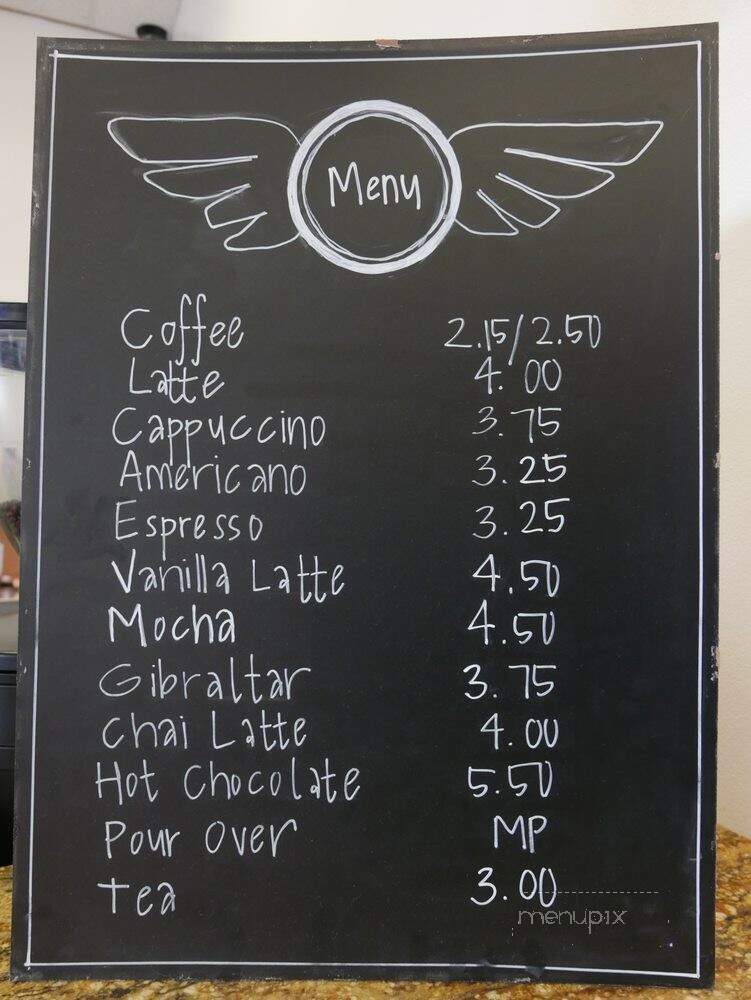 Menu
Coffee 2.15/2.50
Latte 4.00
Cappuccino 3.75
Americano 3.25
Espresso 3.25
Vanilla Latte 4.50
Mocha 4.50
Gibraltar 3.75
Chai Latte 4.00
Hot Chocolate 5.50
Pour Over MP
Tea 3.00
menupix